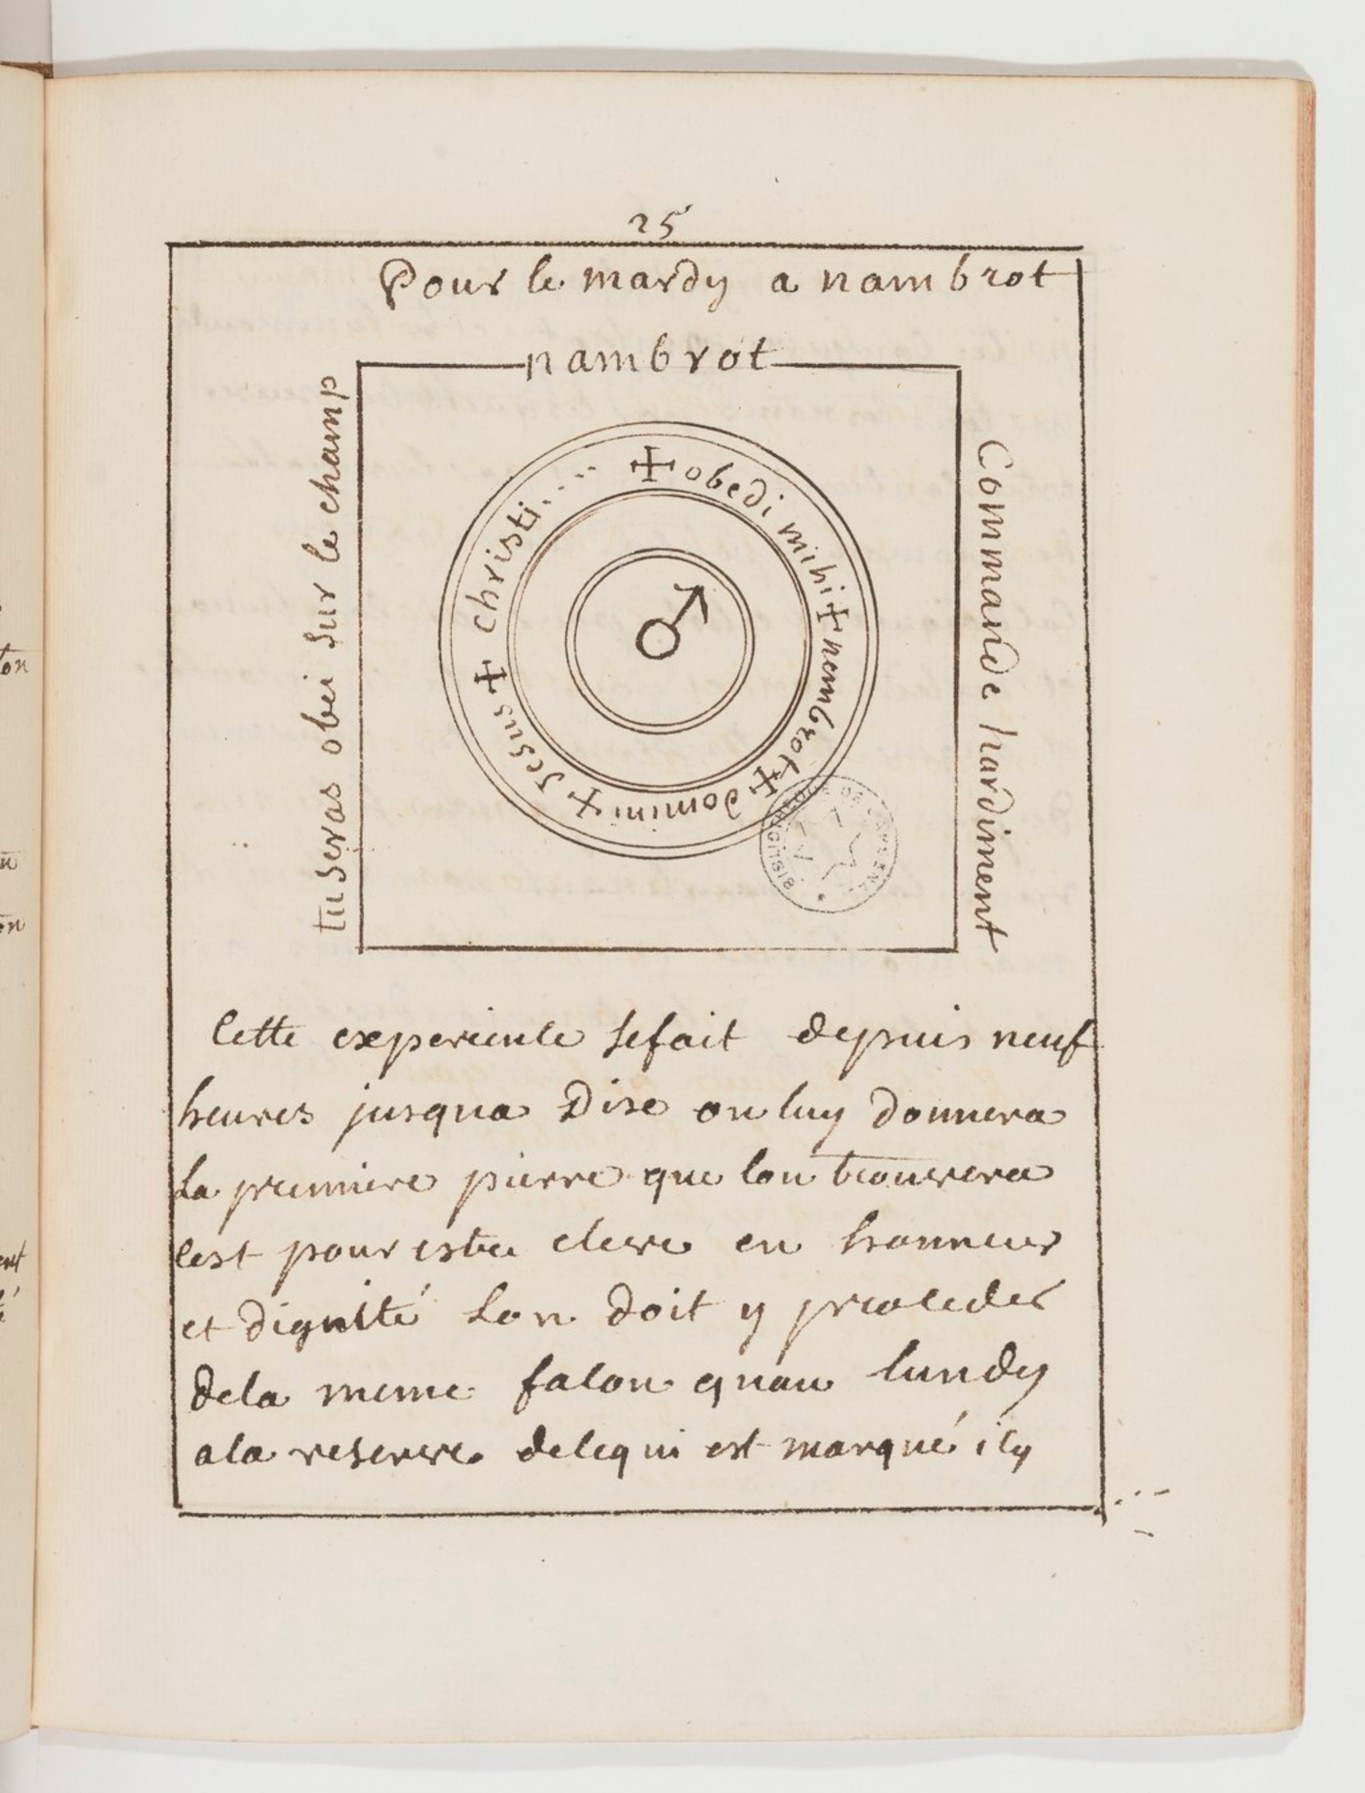 25
Pour le mardy a nambrot
nambrot
tu seras obei sur le champ
Commande hardiment
+ obedi mihi + nembrot + domini + Jesus + christi....
Cette experience se fait depuis neuf
heures jusqua Dixe on luy donnera
la premiere pierre que lon trouvera
cest pour estre eleve en honneur
et dignité Lon doit y proceder
dela meme facon quau lundy
ala reserve decequi est marqué icy
BIBLIOTHEQUE DE L'ARSENAL
ton
en